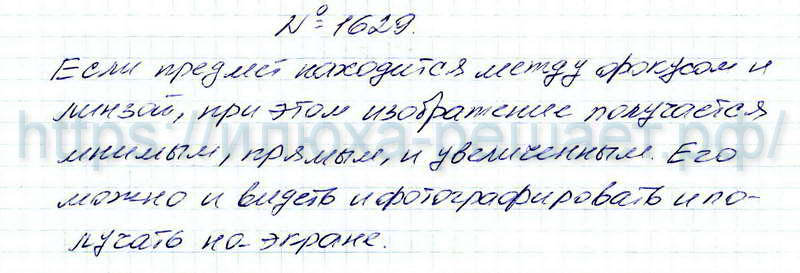 № 1629.
Если предмет находится между фокусом и
линзой, при этом изображение получается
https://илюха-решает.рф/
мнимым, прямым, и увеличенным. Его
можно и видеть и фотографировать и по-
лучать на экране.